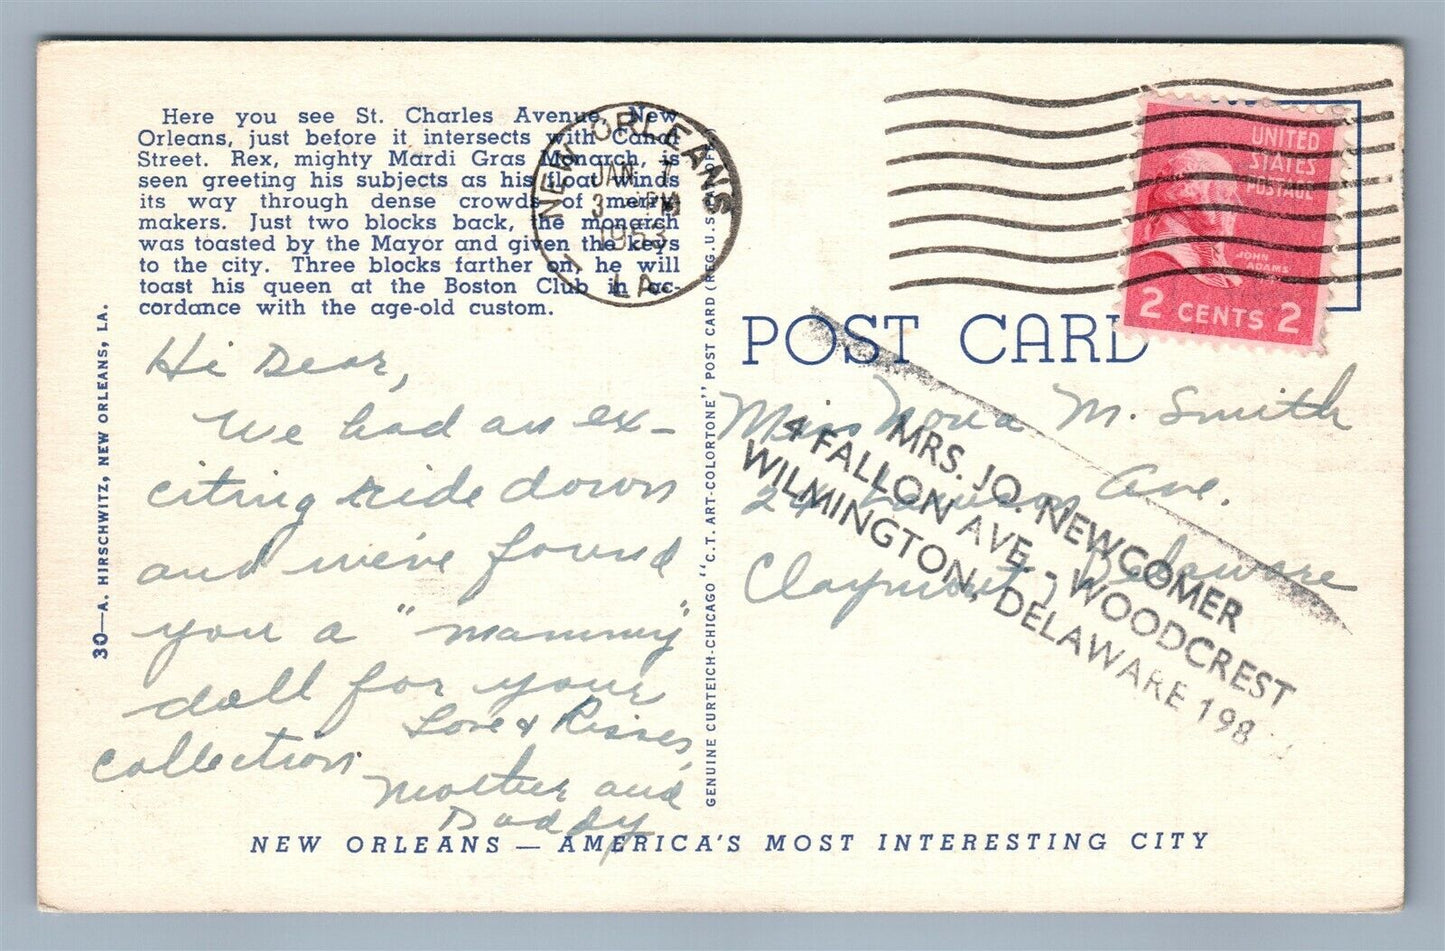 Here you see St. Charles Avenue, New
Orleans, just before it intersects with Canal
Street. Rex, mighty Mardi Gras Monarch, is
seen greeting his subjects as his float winds
its way through dense crowds of merry-
makers. Just two blocks back, the monarch
was toasted by the Mayor and given the keys
to the city. Three blocks farther on, he will
toast his queen at the Boston Club in ac-
cordance with the age-old custom.
NEW ORLEANS
JAN
3 PM
1953
LA.
UNITED
STATES
POSTAGE
JOHN
ADAMS
2 CENTS 2
POST CARD
Hi Dear,
We had an ex-
citing ride down
and we've found
you a "mammy"
doll for your
collection.
Love & Kisses,
Mother and
Daddy
Miss Nora M. Smith
24 Ave.
Claymont, Delaware
MRS. JO. NEWCOMER
4 FALLON AVE. - WOODCREST
WILMINGTON, DELAWARE 198
30—A. HIRSCHWITZ, NEW ORLEANS, LA.
GENUINE CURTEICH-CHICAGO "C.T. ART-COLORTONE" POST CARD (REG. U.S. PAT. OFF.)
NEW ORLEANS — AMERICA'S MOST INTERESTING CITY